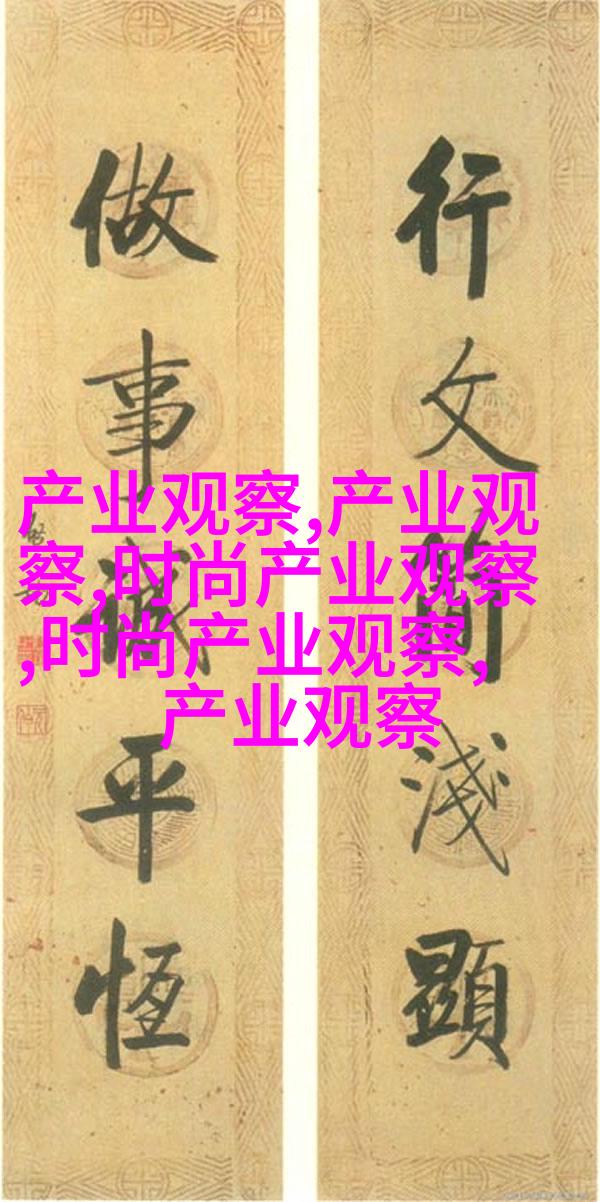 行文簡淺顯
做事誠平恆
产业观察,产业观
察,时尚产业观察
,时尚产业观察,
产业观察